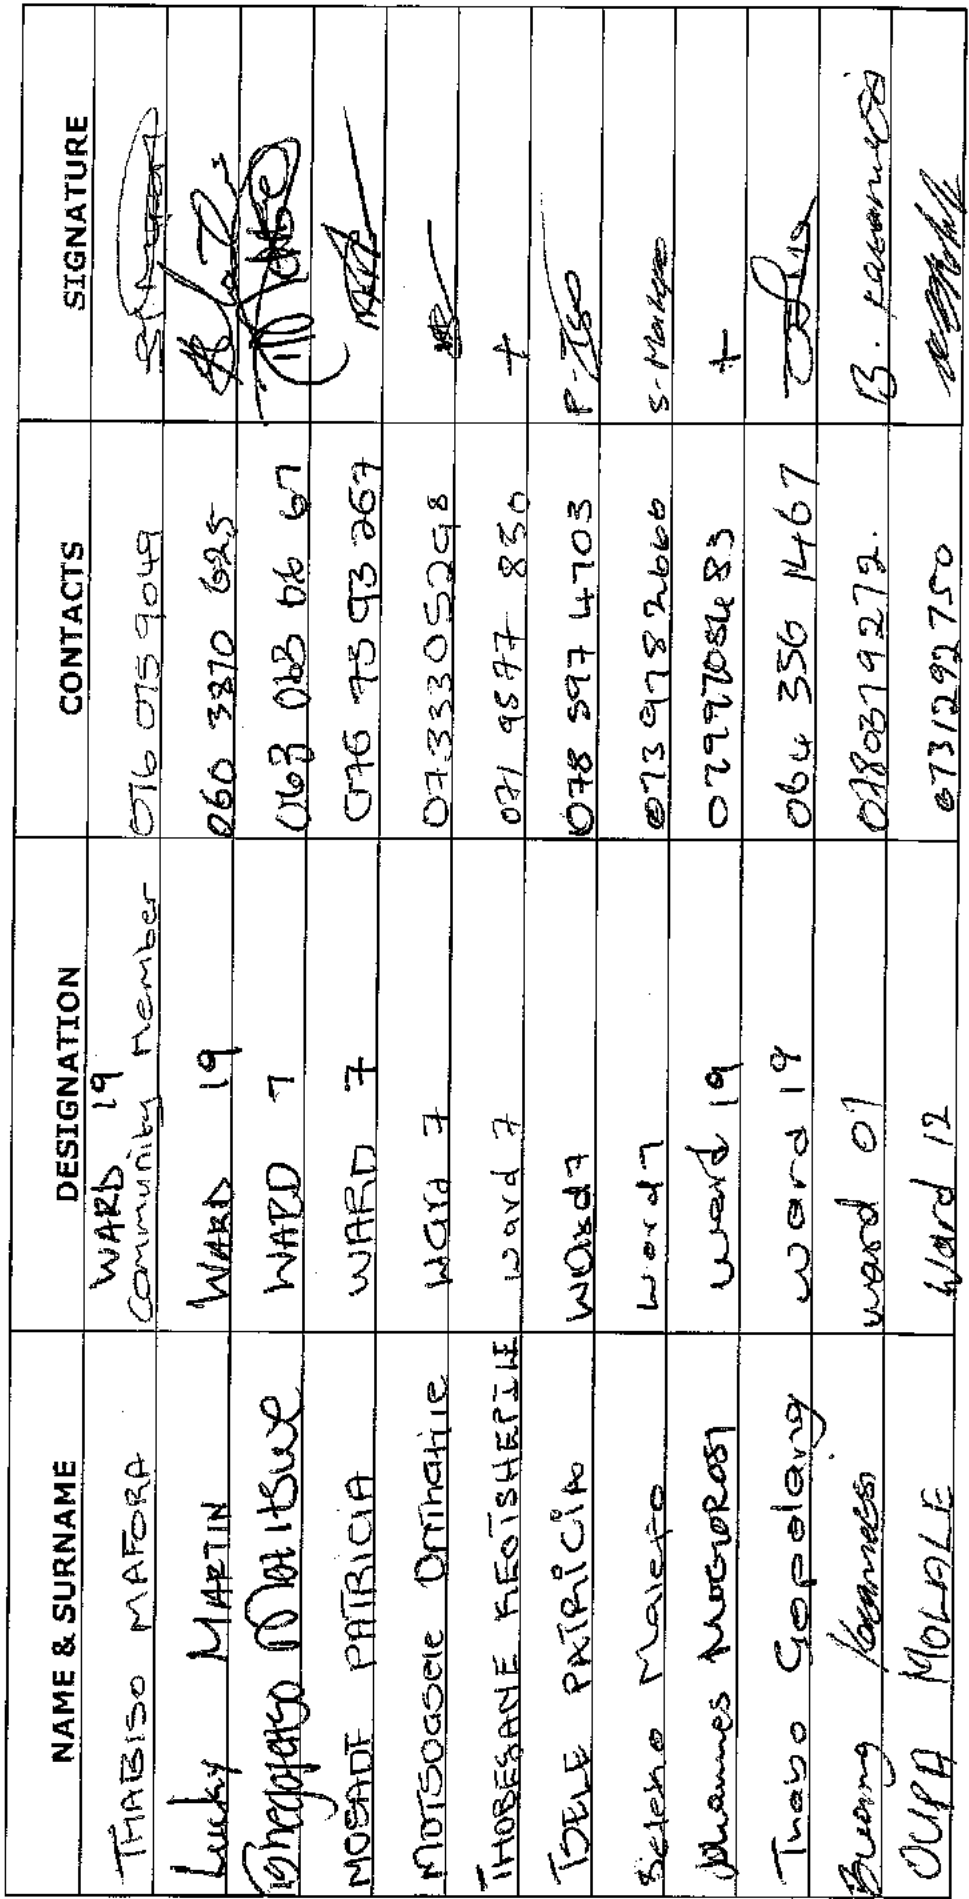 NAME & SURNAME DESIGNATION CONTACTS SIGNATURE
THABISO MAFORA WARD 19 Community Member 076 075 9049
Lucky MARTIN WARD 19 060 3870 625
WARD 7 063 063 06 67
MOSADI PATRICIA WARD 7 076 75 93 267
MOTSOAGELE Ward 7 0733305298
THOBESANE KEOTSHEPILE ward 7 071 9577 830
TSELE PATRICIA Ward 7 078 597 4703 P-Tse
Seleho Malefo word 7 0739782660
Johannes MOGOROSI ward 19 0729708483 +
Thabo Gopolang ward 19 064 356 1467
ward 07 0780379272. B.
OUPA MOLALE Ward 12 0731292750